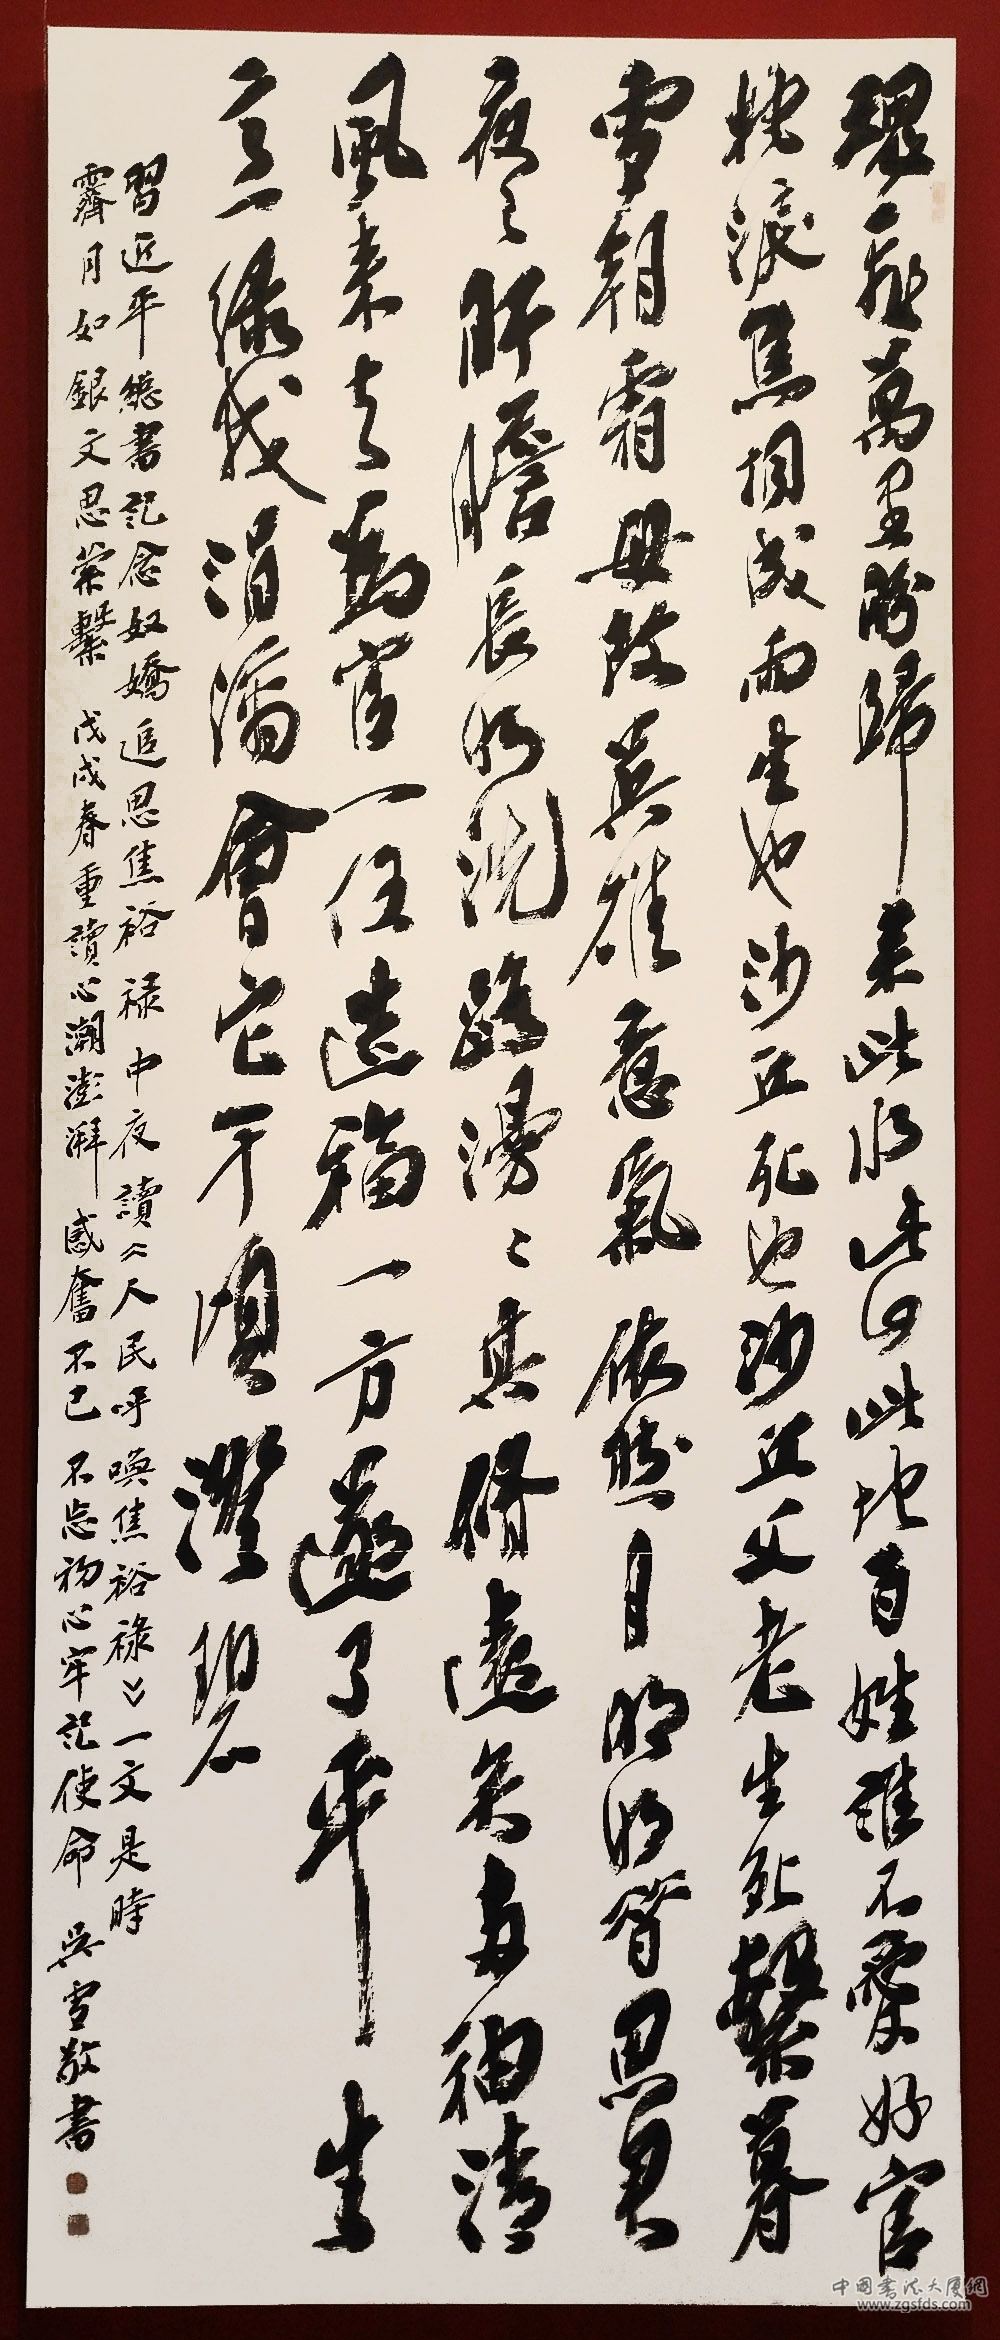 魂飛萬里盼歸來此水此山此地百姓誰不愛好官
把淚焦桐成雨生也沙丘死也沙丘父老生死繫暮
雪朝霜毋改英雄意氣依然月明如昔思君
夜夜肝膽長如洗路漫漫其脩遠矣兩袖清
風來去為官一任造福一方遂了平生
意綠我涓滴會它千頃澄碧
習近平總書記念奴嬌追思焦裕祿中夜讀《人民呼喚焦裕祿》一文是時
霽月如銀文思縈繫 戊戌春重讀心潮澎湃感奮不已不忘初心牢記使命 吳雪敬書
中国書法大厦網
www.zgsfds.com